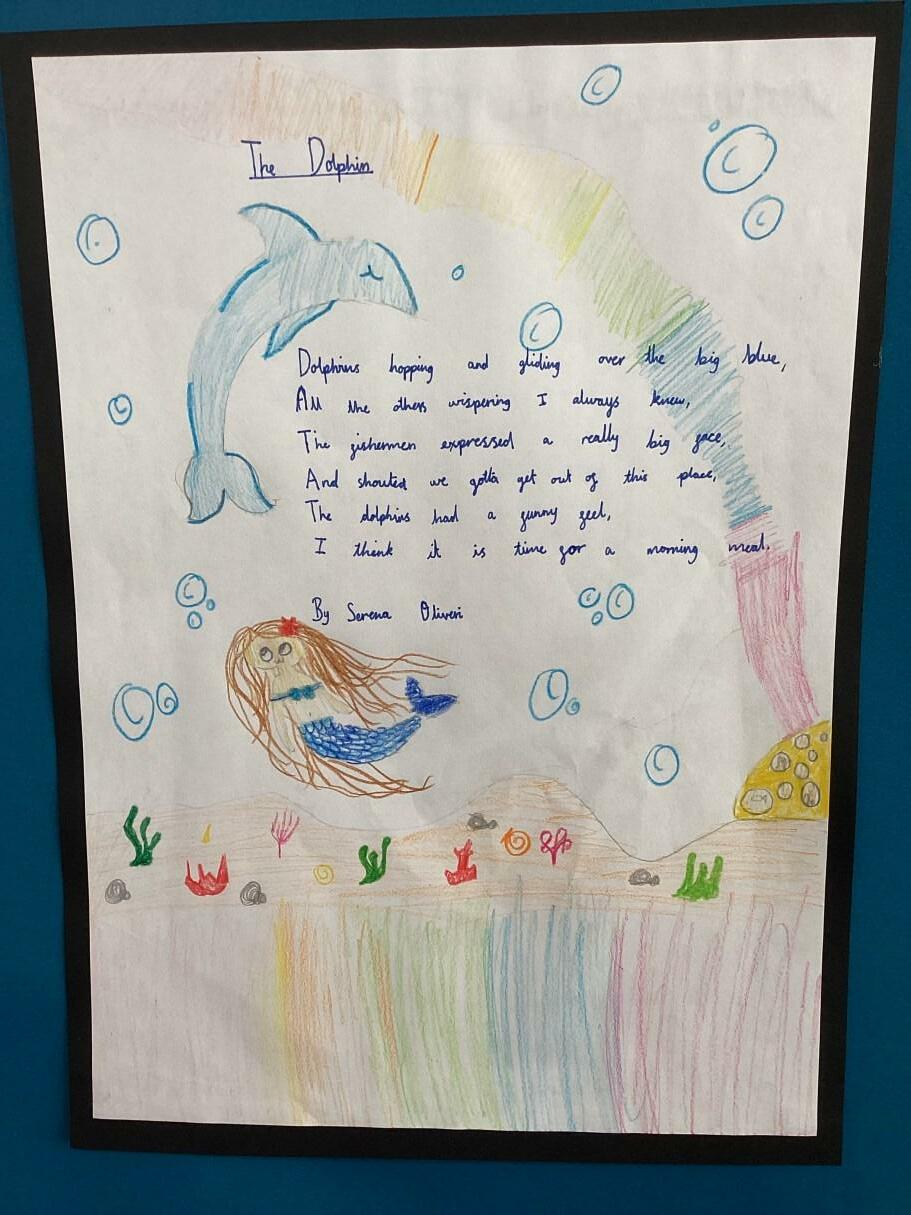 The Dolphin
Dolphins hopping and gliding over the big blue,
All the others wispering I always knew,
The fishermen expressed a really big face,
And shouted we gotta get out of this place,
The dolphins had a funny feel,
I think it is time for a morning meal.
By Serena Oliveri